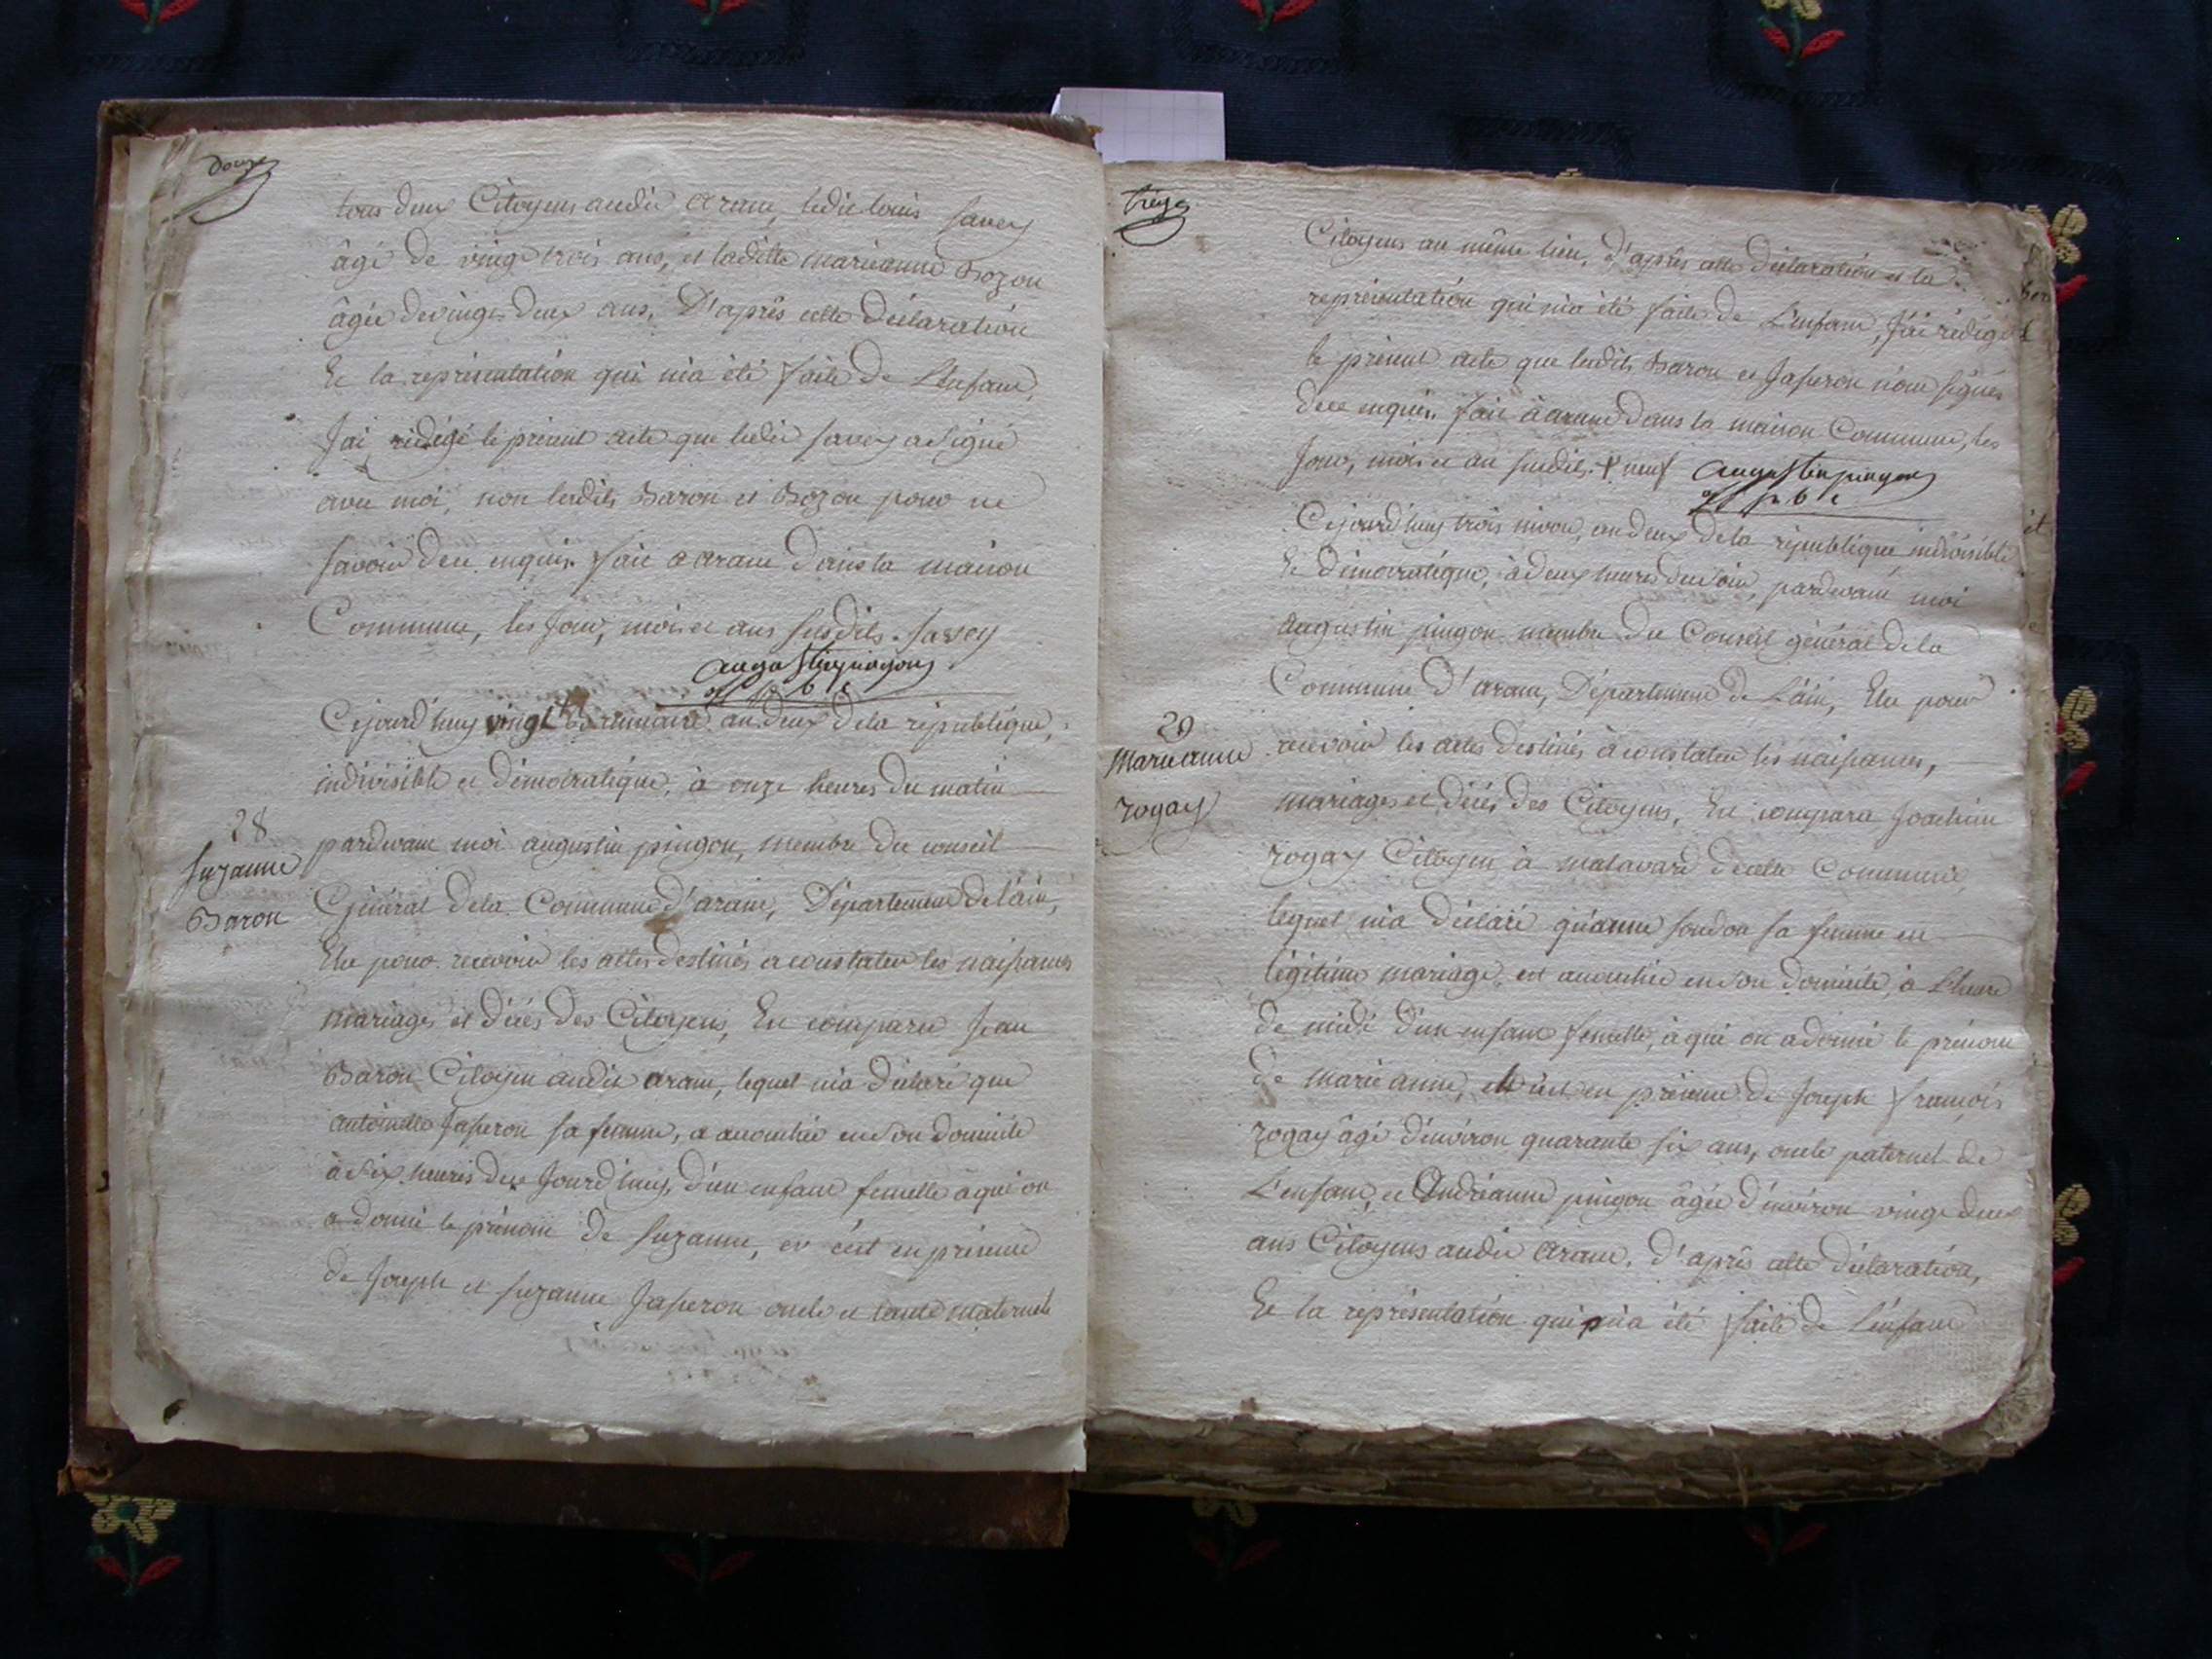 douze
tous deux Citoyens audit arane, ledit louis savey
âgé de vingt trois ans, et ladite marieanne Bozon
âgée de vingt deux ans. D'après cette déclaration
Et la représentation qui m'a été faite de L'enfant,
J'ai rédigé le présent acte que ledit savey a signé
avec moi, non lesdits Baron et Bozon pour ne
savoir de ce enquis. fait a arane dans la maison
Commune, les jour, mois et ans susdits. savey
augustin pingon
off p b c
Cejourd'huy vingt Brumaire an deux de la république,
indivisible et démocratique, à onze heures du matin
28
suzanne
Baron
pardevant moi augustin pingon, membre du conseil
Général de la Commune d'arane, Département de l'ain,
Elu pour recevoir les actes destinés a constater les naissances
mariages et décés des Citoyens, Est comparu jean
Baron Citoyen audit arane, lequel m'a déclaré que
antoinette Jaseron sa femme, a accouchée en son domicile
à six heures de ce Jourd'huy, d'un enfant femelle à qui on
a donné le prénom de suzanne, et c'est en présence
de Joseph et suzanne Jaseron oncle et tante maternels
treize
Citoyens au même lieu, d'après cette déclaration et la
représentation qui m'a été faite de L'enfant, j'ai rédigé
le présent acte que lesdits Baron et Jaseron n'ont signés
de ce enquis. fait à arane dans la maison Commune, les
Jour, mois et an susdits. neuf augustin pingon
off p b c
Cejourd'huy trois nivose, an deux de la république indivisible
Et démocratique, à deux heures du soir, pardevant moi
augustin pingon membre du Conseil général de la
Commune d'arane, Département de L'ain, Elu pour
29
Marieanne
rogay
recevoir les actes destinés à constater les naissances,
mariages et décés des Citoyens, Est comparu Joachim
rogay Citoyen à malavard de cette Commune,
lequel m'a déclaré qu'anne fondon sa femme en
légitime mariage, est accouchée en son domicile, à L'heure
de midi d'un enfant femelle, à qui on a donné le prénom
de marie anne, et c'est en présence de Joseph françois
rogay âgé d'environ quarante six ans, oncle paternel de
L'enfant, et Andréanne pingon âgée d'environ vingt deux
ans Citoyens audit Arane, d'après cette déclaration,
Et la représentation qui m'a été faite de L'enfant